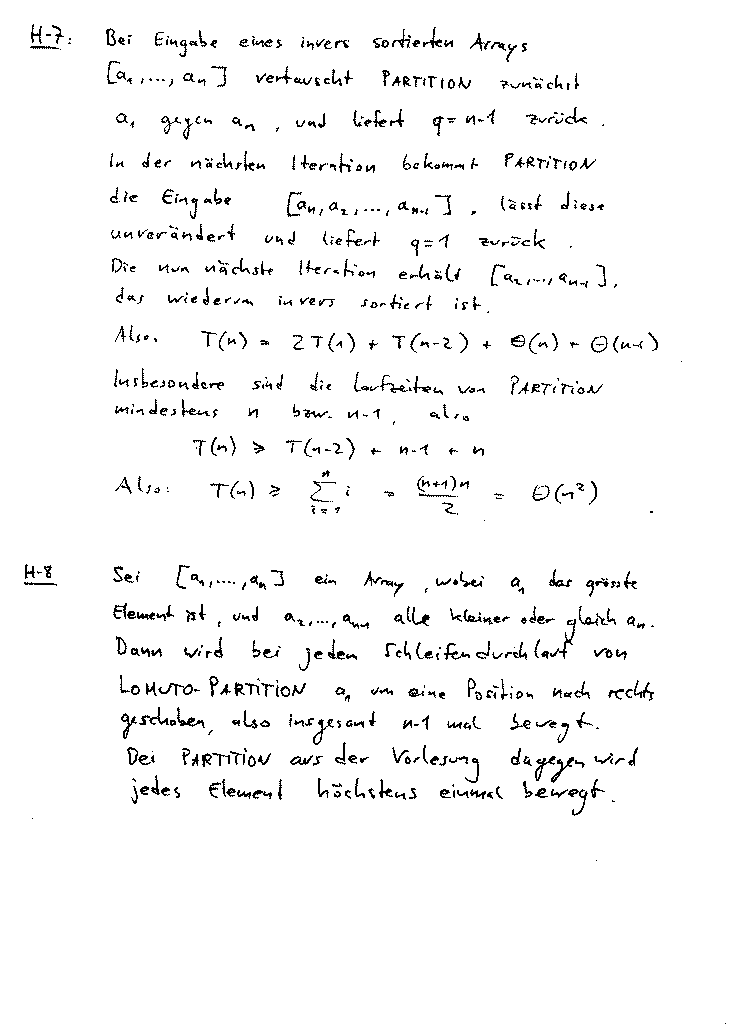 H-7: Bei Eingabe eines invers sortierten Arrays
[a₁,..., aₙ] vertauscht PARTITION zunächst
a₁ gegen aₙ, und liefert q=n-1 zurück.
In der nächsten Iteration bekommt PARTITION
die Eingabe [aₙ, a₂,..., aₙ₋₁], lässt diese
unverändert und liefert q=1 zurück.
Die nun nächste Iteration erhält [a₂,..., aₙ₋₁],
das wiederum invers sortiert ist.
Also, T(n) = 2T(1) + T(n-2) + Θ(n) + Θ(n-1)
Insbesondere sind die Laufzeiten von PARTITION
mindestens n bzw. n-1, also
T(n) ≥ T(n-2) + n-1 + n
Also: T(n) ≥ ∑ⁿᵢ₌₁ i = (n+1)n/2 = Θ(n²)
H-8 Sei [a₁,...., aₙ] ein Array, wobei a₁ das grösste
Element ist, und a₂,..., aₙ₋₁ alle kleiner oder gleich aₙ.
Dann wird bei jedem Schleifendurchlauf von
LOMUTO-PARTITION a₁ um eine Position nach rechts
geschoben, also insgesamt n-1 mal bewegt.
Bei PARTITION aus der Vorlesung dagegen wird
jedes Element höchstens einmal bewegt.